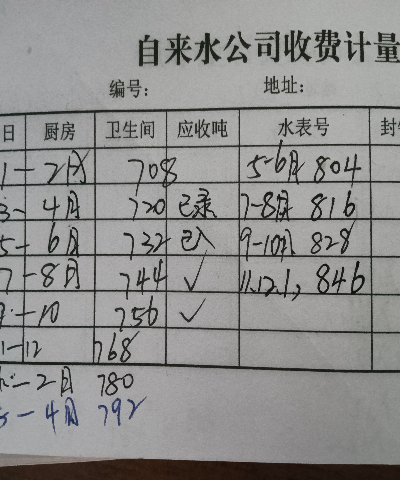 自来水公司收费计量
编号： 地址：
日 厨房 卫生间 应收吨 水表号 封
1-2月 708 5-6月 804
3-4月 720 已录 7-8月 816
5-6月 732 已入 9-10月 828
7-8月 744 ✓ 11.12.1, 846
9-10 756 ✓
11-12 768
-2月 780
-4月 792